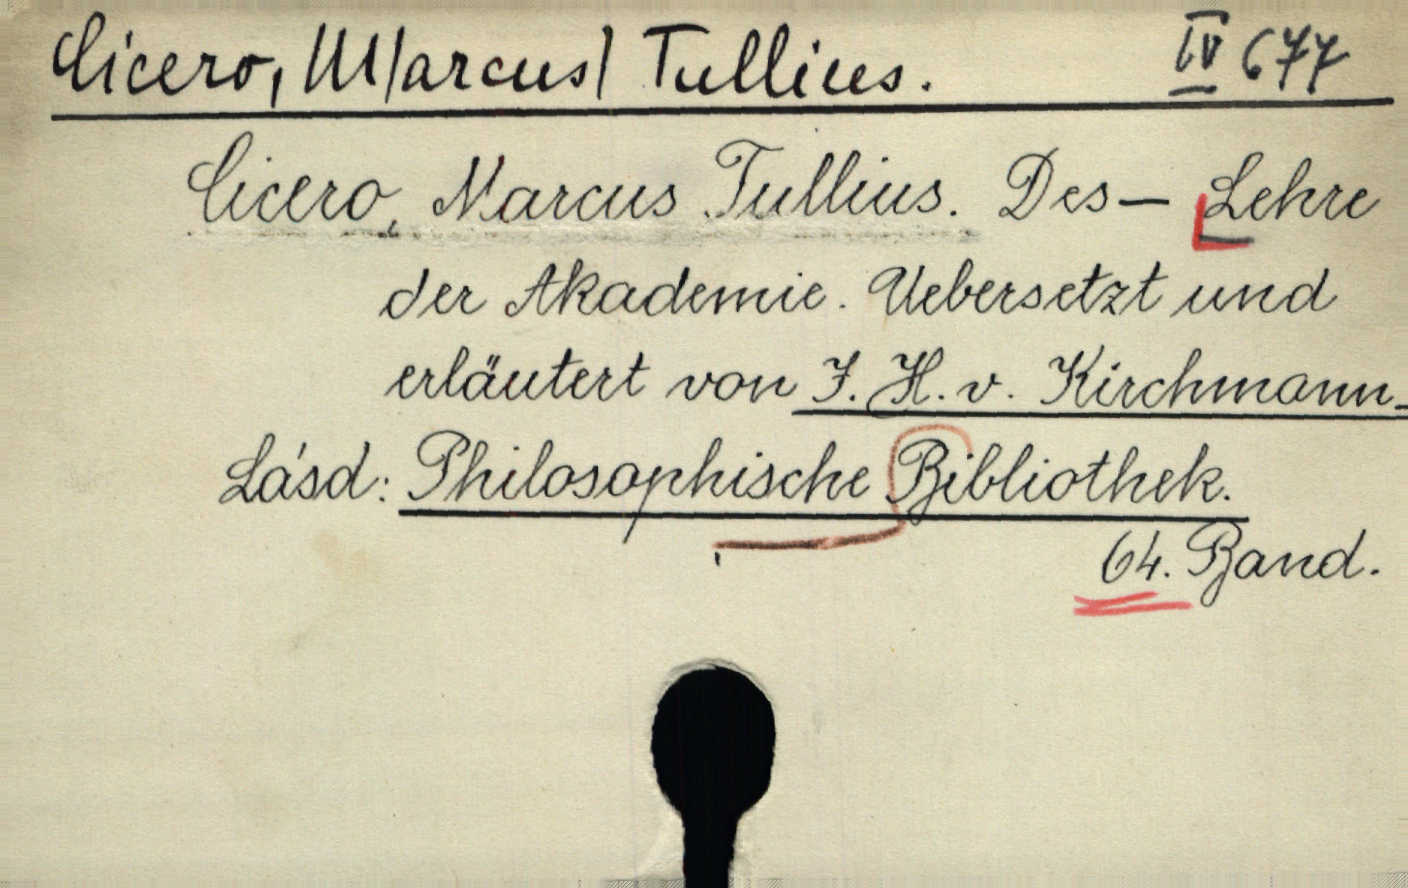 Cicero, M/arcus/ Tullius. IV 677
Cicero, Marcus Tullius. Des — Lehre
der Akademie. Uebersetzt und
erläutert von J. H. v. Kirchmann.
Lásd: Philosophische Bibliothek.
64. Band.